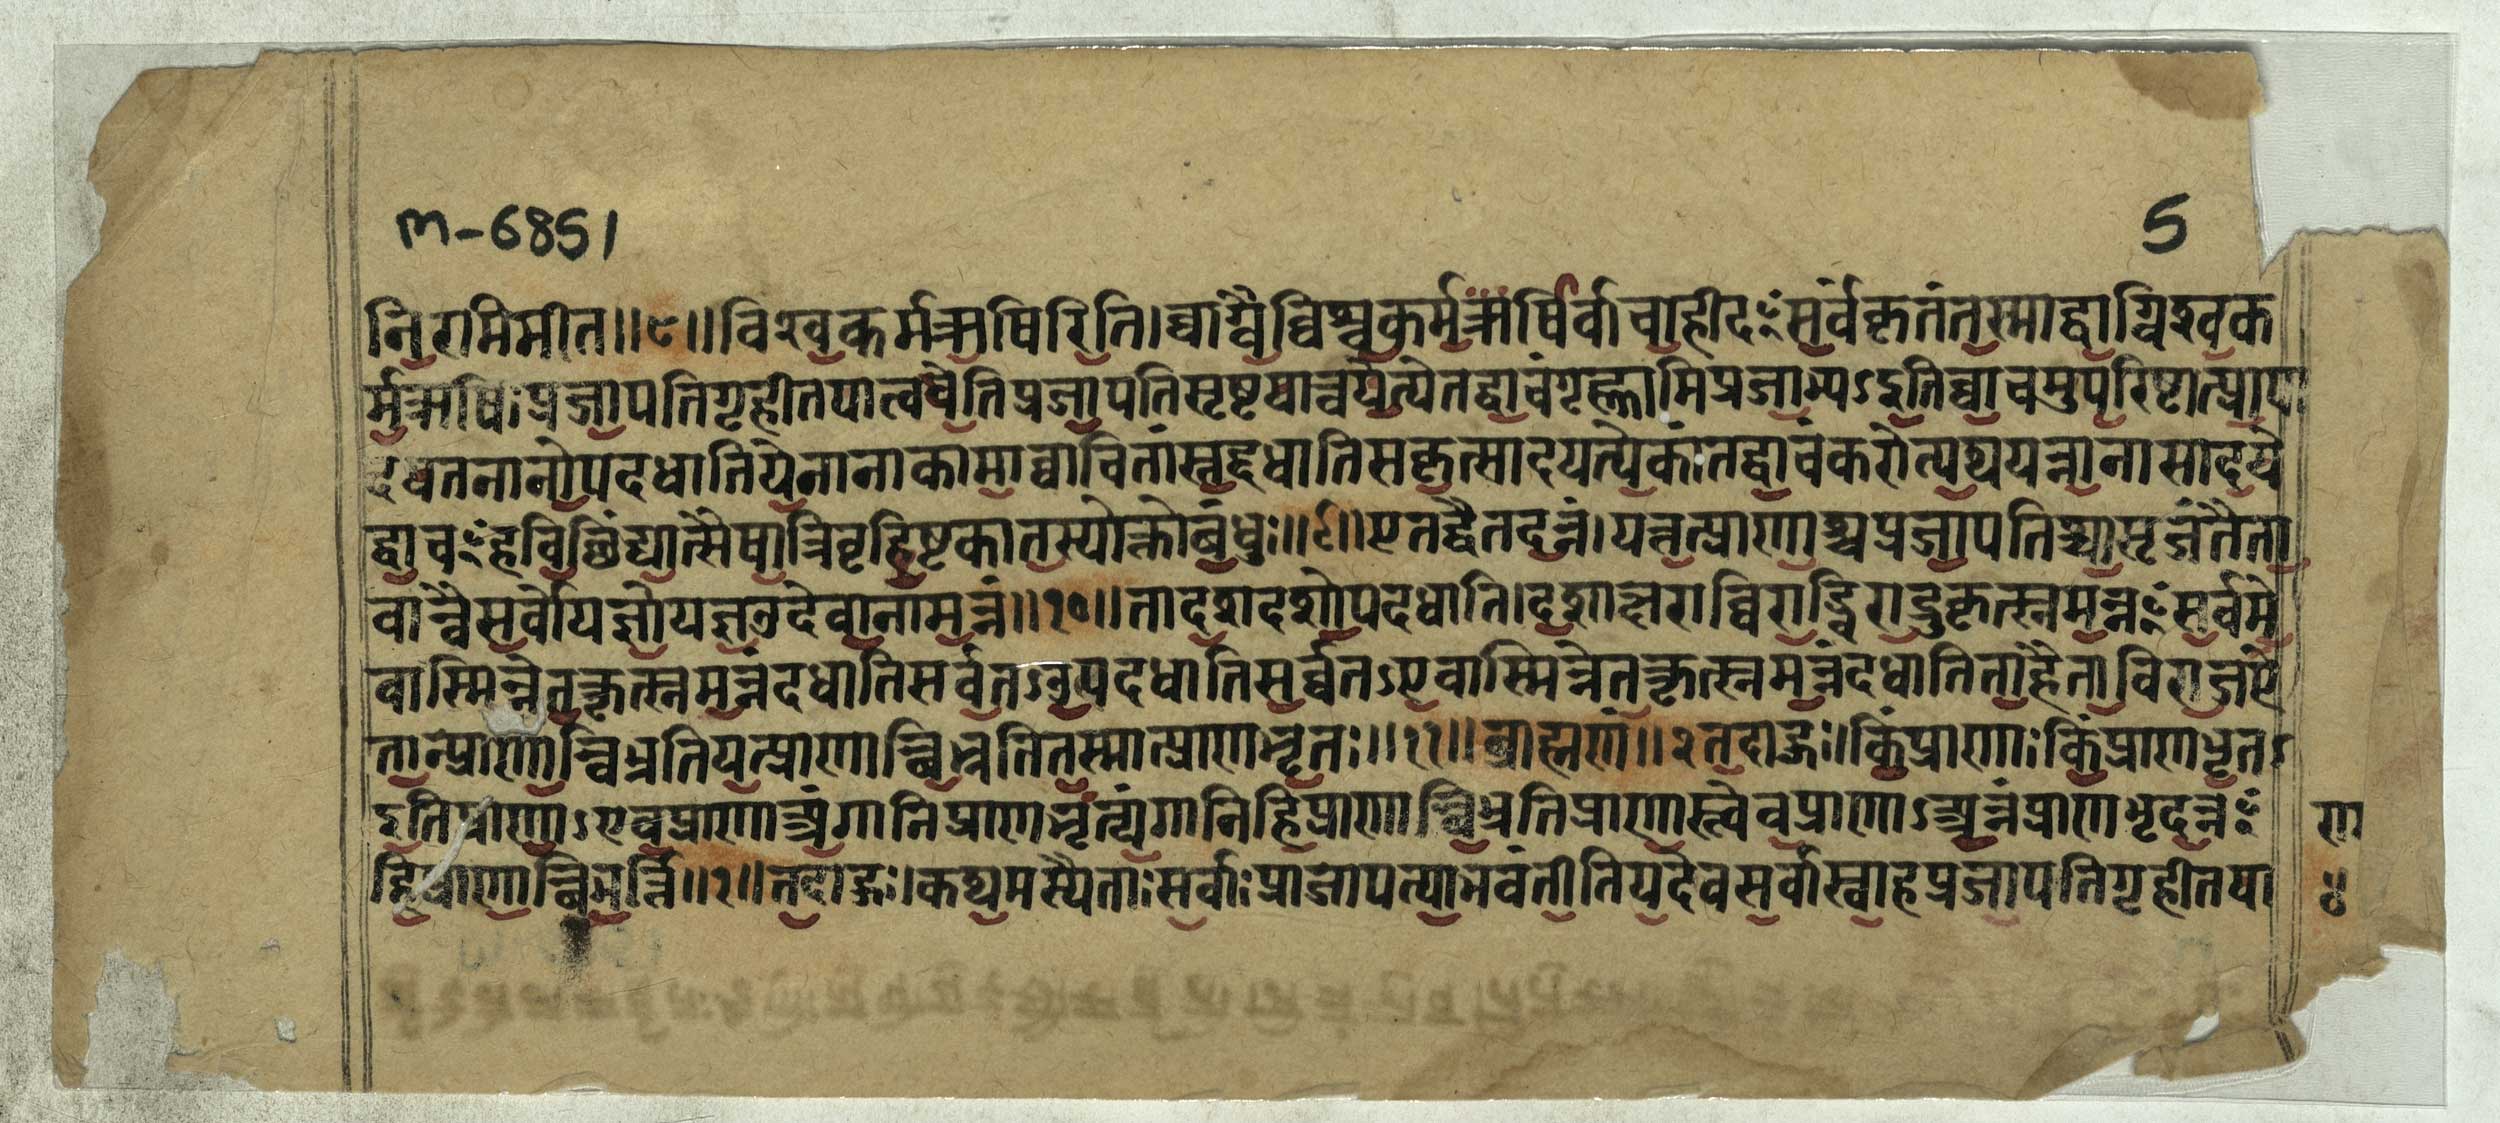 m-6851
5
निरमिमीत॥९॥विश्वकर्मऋषिरिति।वाग्वैविश्वकर्मऋषिर्वाचाहीदꣳसर्वंकृतंतस्माद्वाग्विश्वक
र्मऋषिःप्रजापतिगृहीतयात्वयेतिप्रजापतिसृष्टयात्वयेत्येतद्वाचंगृह्णामिप्रजाभ्यऽइतिवाचमुपरिष्टात्प्रापा
दयततनानोपदधातियेनानाकामावाचितांस्तद्दधातिसकृत्सादयत्येकांतद्वाचंकरोत्यथयन्नानासादये
द्वाचꣳहविछिंद्यात्सैषात्रिवृदिष्टकातस्योक्तोबंधुः॥ एतद्वैतदन्नं।यत्तत्प्राणाश्चप्रजापतिश्चासृजंतैता
वान्वैसर्वोयज्ञोयज्ञउदेवानामन्नं॥१०॥तादशदशोपदधाति।दशाक्षराविराड्विराडुकृत्स्नमन्नꣳसर्वमे
वास्मिन्नेतत्कृत्स्नमन्नंदधातिसर्वतऽउपदधातिसर्वतऽएवास्मिन्नेतत्कृत्स्नमन्नंदधातिताहैताविराजए
तान्प्राणान्बिभ्रतियत्प्राणान्बिभ्रतितस्मात्प्राणभृतः॥११॥ब्राह्मणं॥२तदाहुः॥किंप्राणाःकिंप्राणभृतऽ
इतिप्राणाऽएवप्राणाअंगानिप्राणभृंत्यंगानिहिप्राणान्बिभ्रतिप्राणास्त्वेवप्राणाऽअन्नंप्राणभृदन्नꣳ
हिप्राणान्बिभर्त्ति॥१॥तदाहुः।कथमस्यैताःसर्वाःप्राजापत्याभवंतीतियदेवसर्वास्वाहप्रजापतिगृहीतया
रा
४